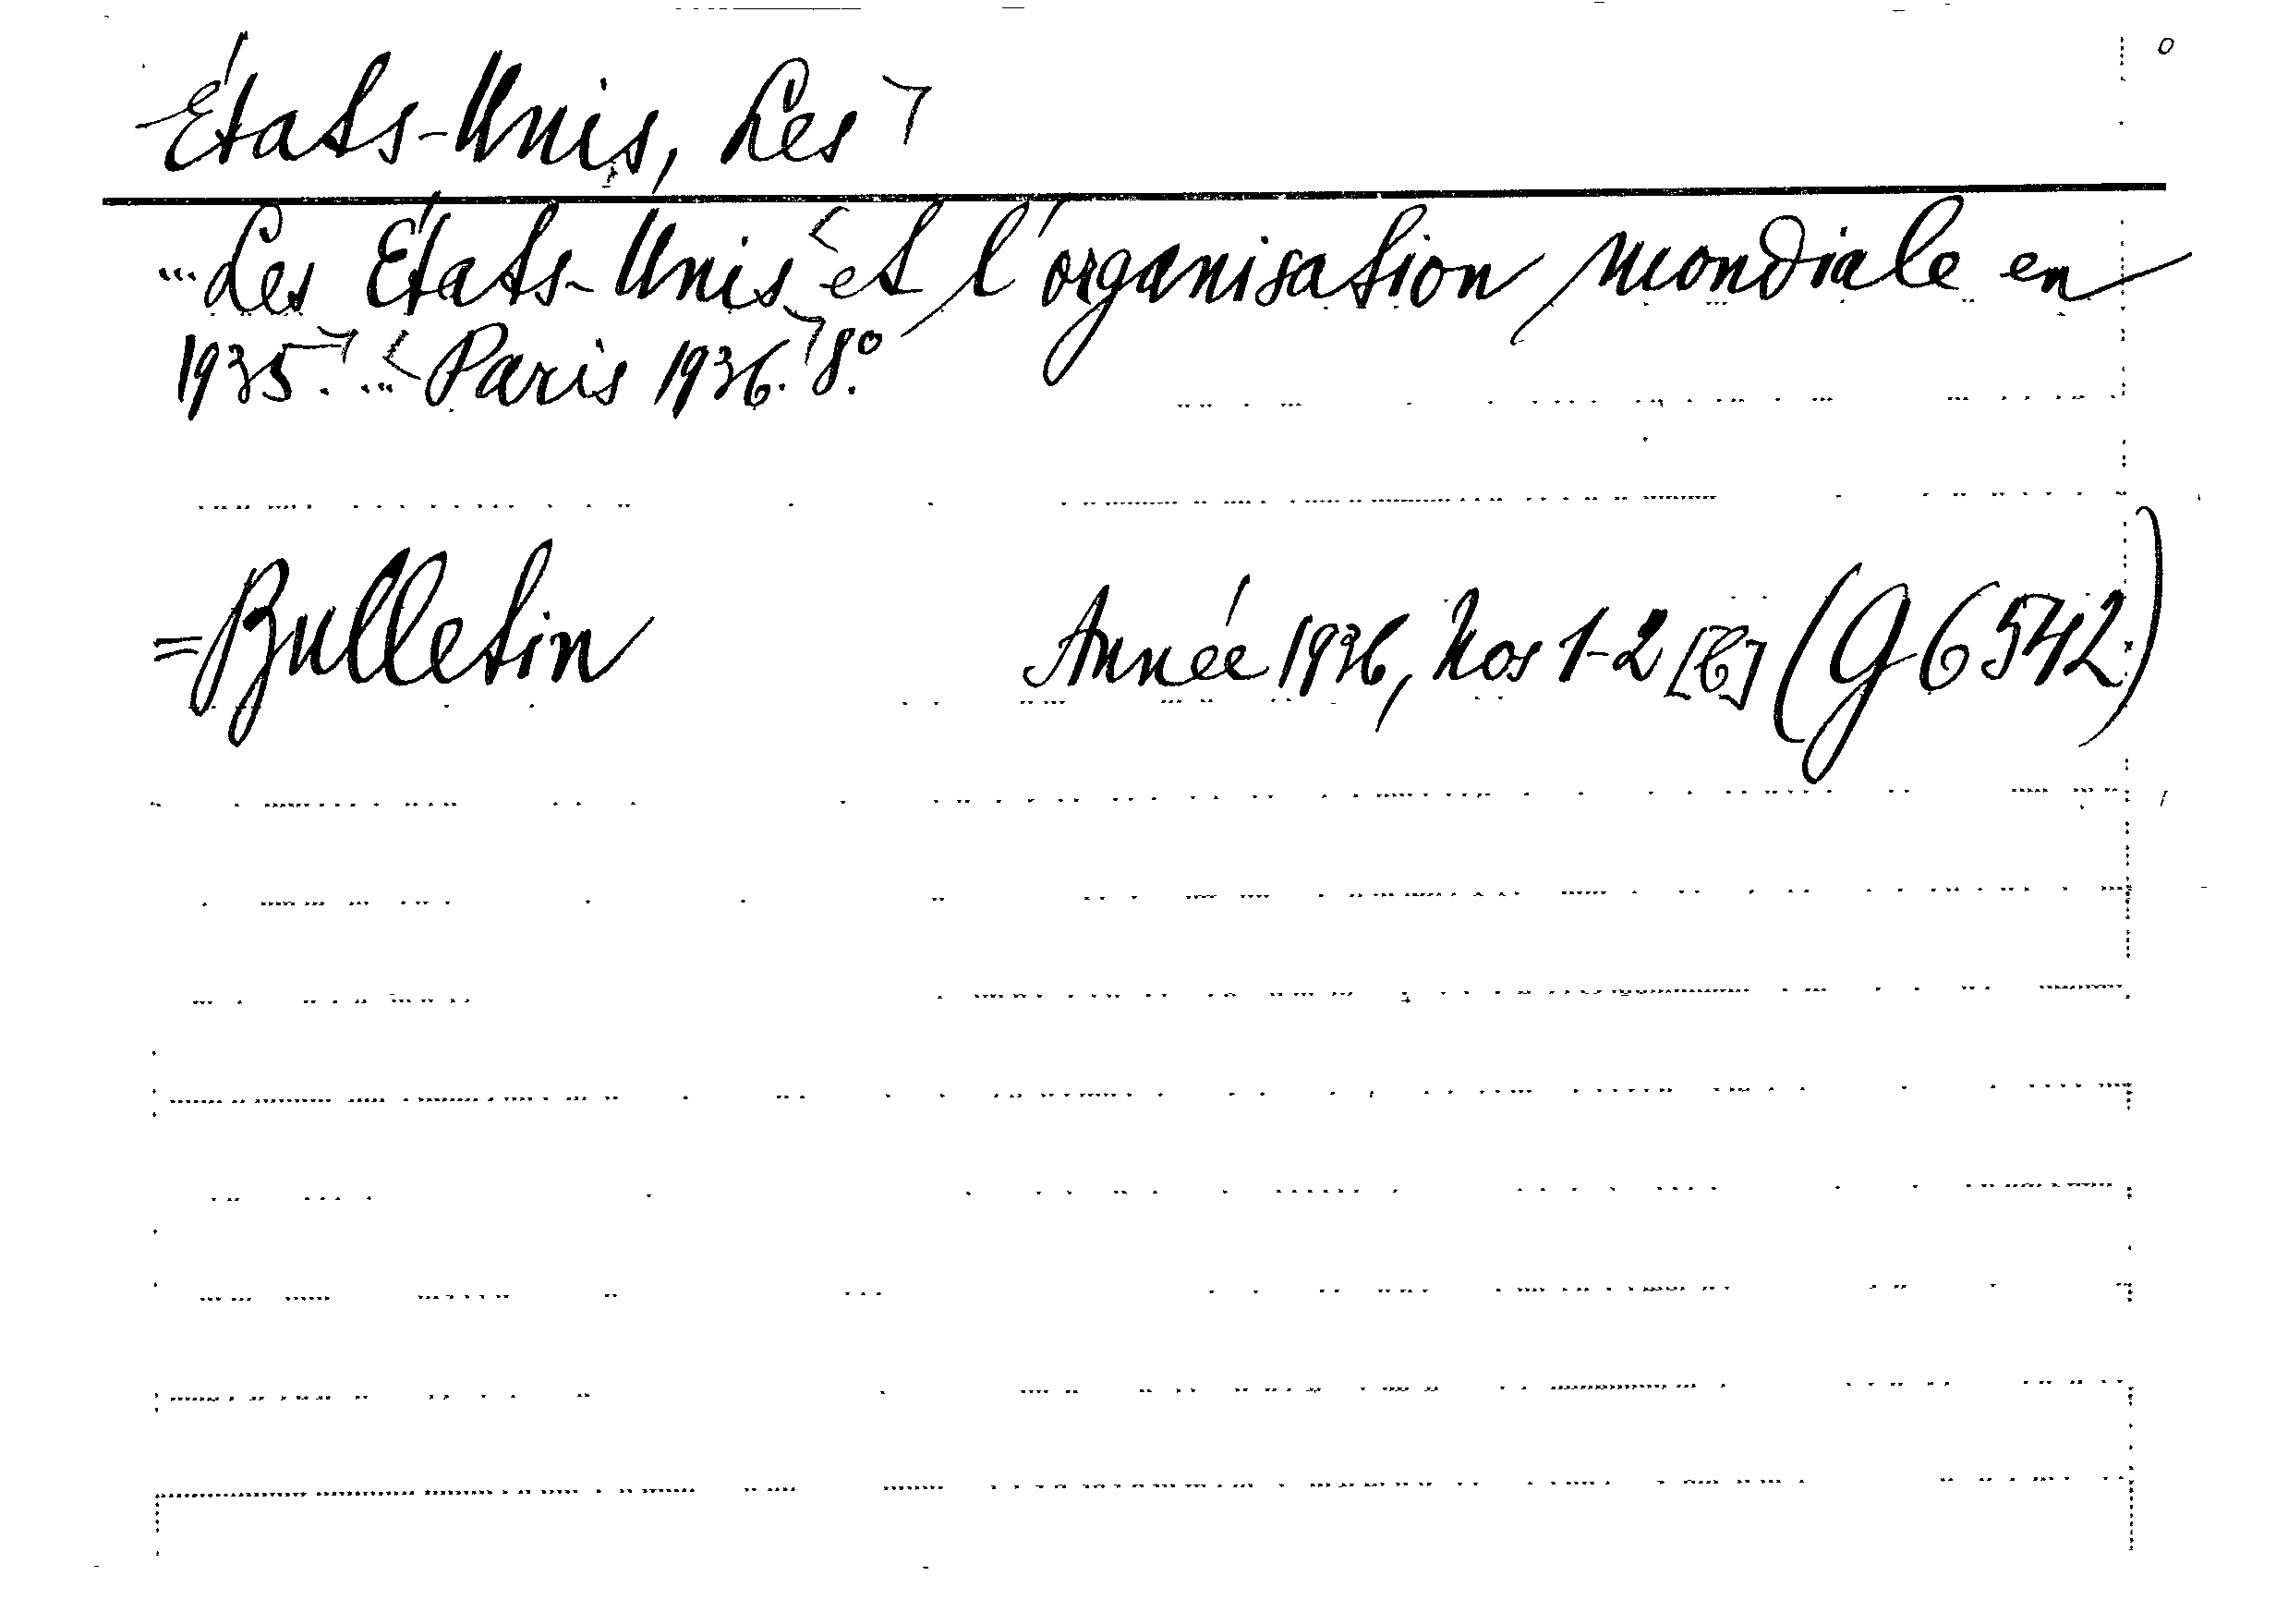 États-Unis, Les
...Les États-Unis et l'organisation mondiale en
1935. ... Paris 1936. 8°.
=Bulletin Année 1936, Nos 1-2 (G 6542)